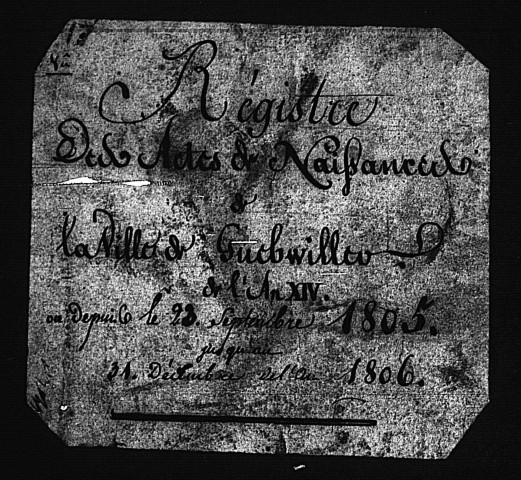 Régistre
Des Actes de Naissances
de
la Ville de Guebwiller
de l'An XIV.
ou depuis le 23. Septembre 1805.
jusqu'au
31. Décembre de l'an 1806.